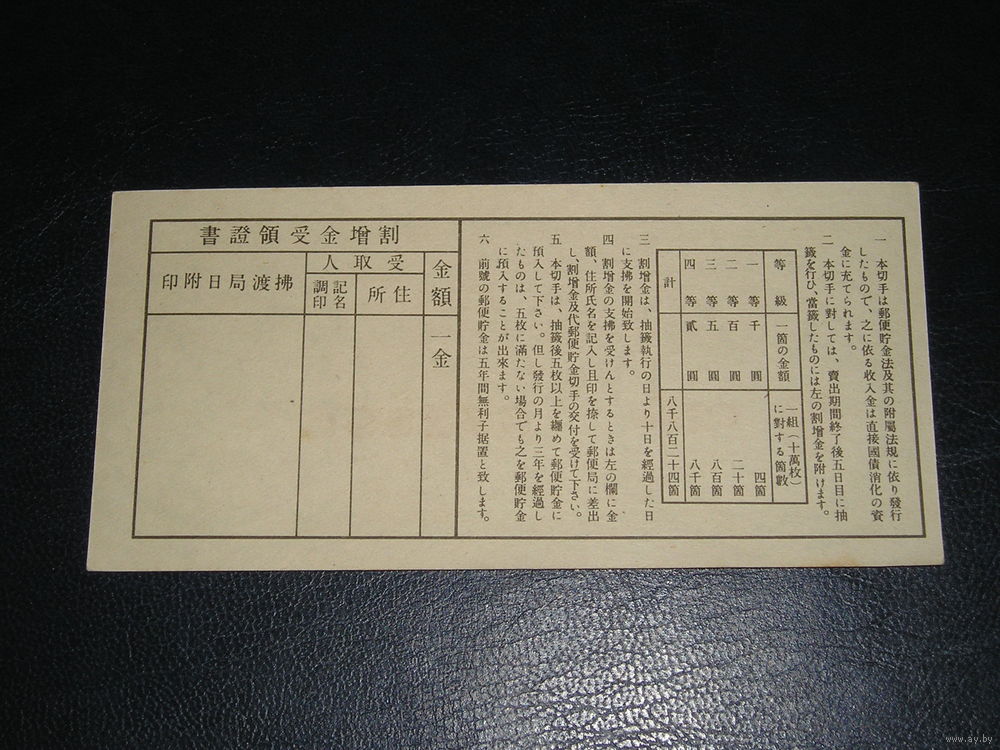 一 本切手は郵便貯金法及其の附屬法規に依り發行
したもので、之に依る收入金は直接國債消化の資
金に充てられます。
二 本切手に對しては、賣出期間終了後五日目に抽
籤を行ひ、當籤したものには左の割增金を附けます。
等級
一箇の金額
一組(十萬枚)
に對する箇數
一等
千圓
四箇
二等
百圓
二十箇
三等
五圓
八百箇
四等
貳圓
八千箇
計
八千八百二十四箇
三 割增金は、抽籤執行の日より十日を經過した日
に支拂を開始致します。
四 割增金の支拂を受けんとするときは左の欄に金
額、住所氏名を記入し且印を捺して郵便局に差出
し、割增金及代郵便貯金切手の交付を受けて下さい。
五 本切手は、抽籤後五枚以上を纏めて郵便貯金に
預入して下さい。但し發行の月より三年を經過し
たものは、五枚に滿たない場合でも之を郵便貯金
に預入することが出來ます。
六 前號の郵便貯金は五年間無利子据置と致します。
割增金受領證書
金額
一金
受取人
住所
記名
調印
拂渡局日附印
www.ay.by